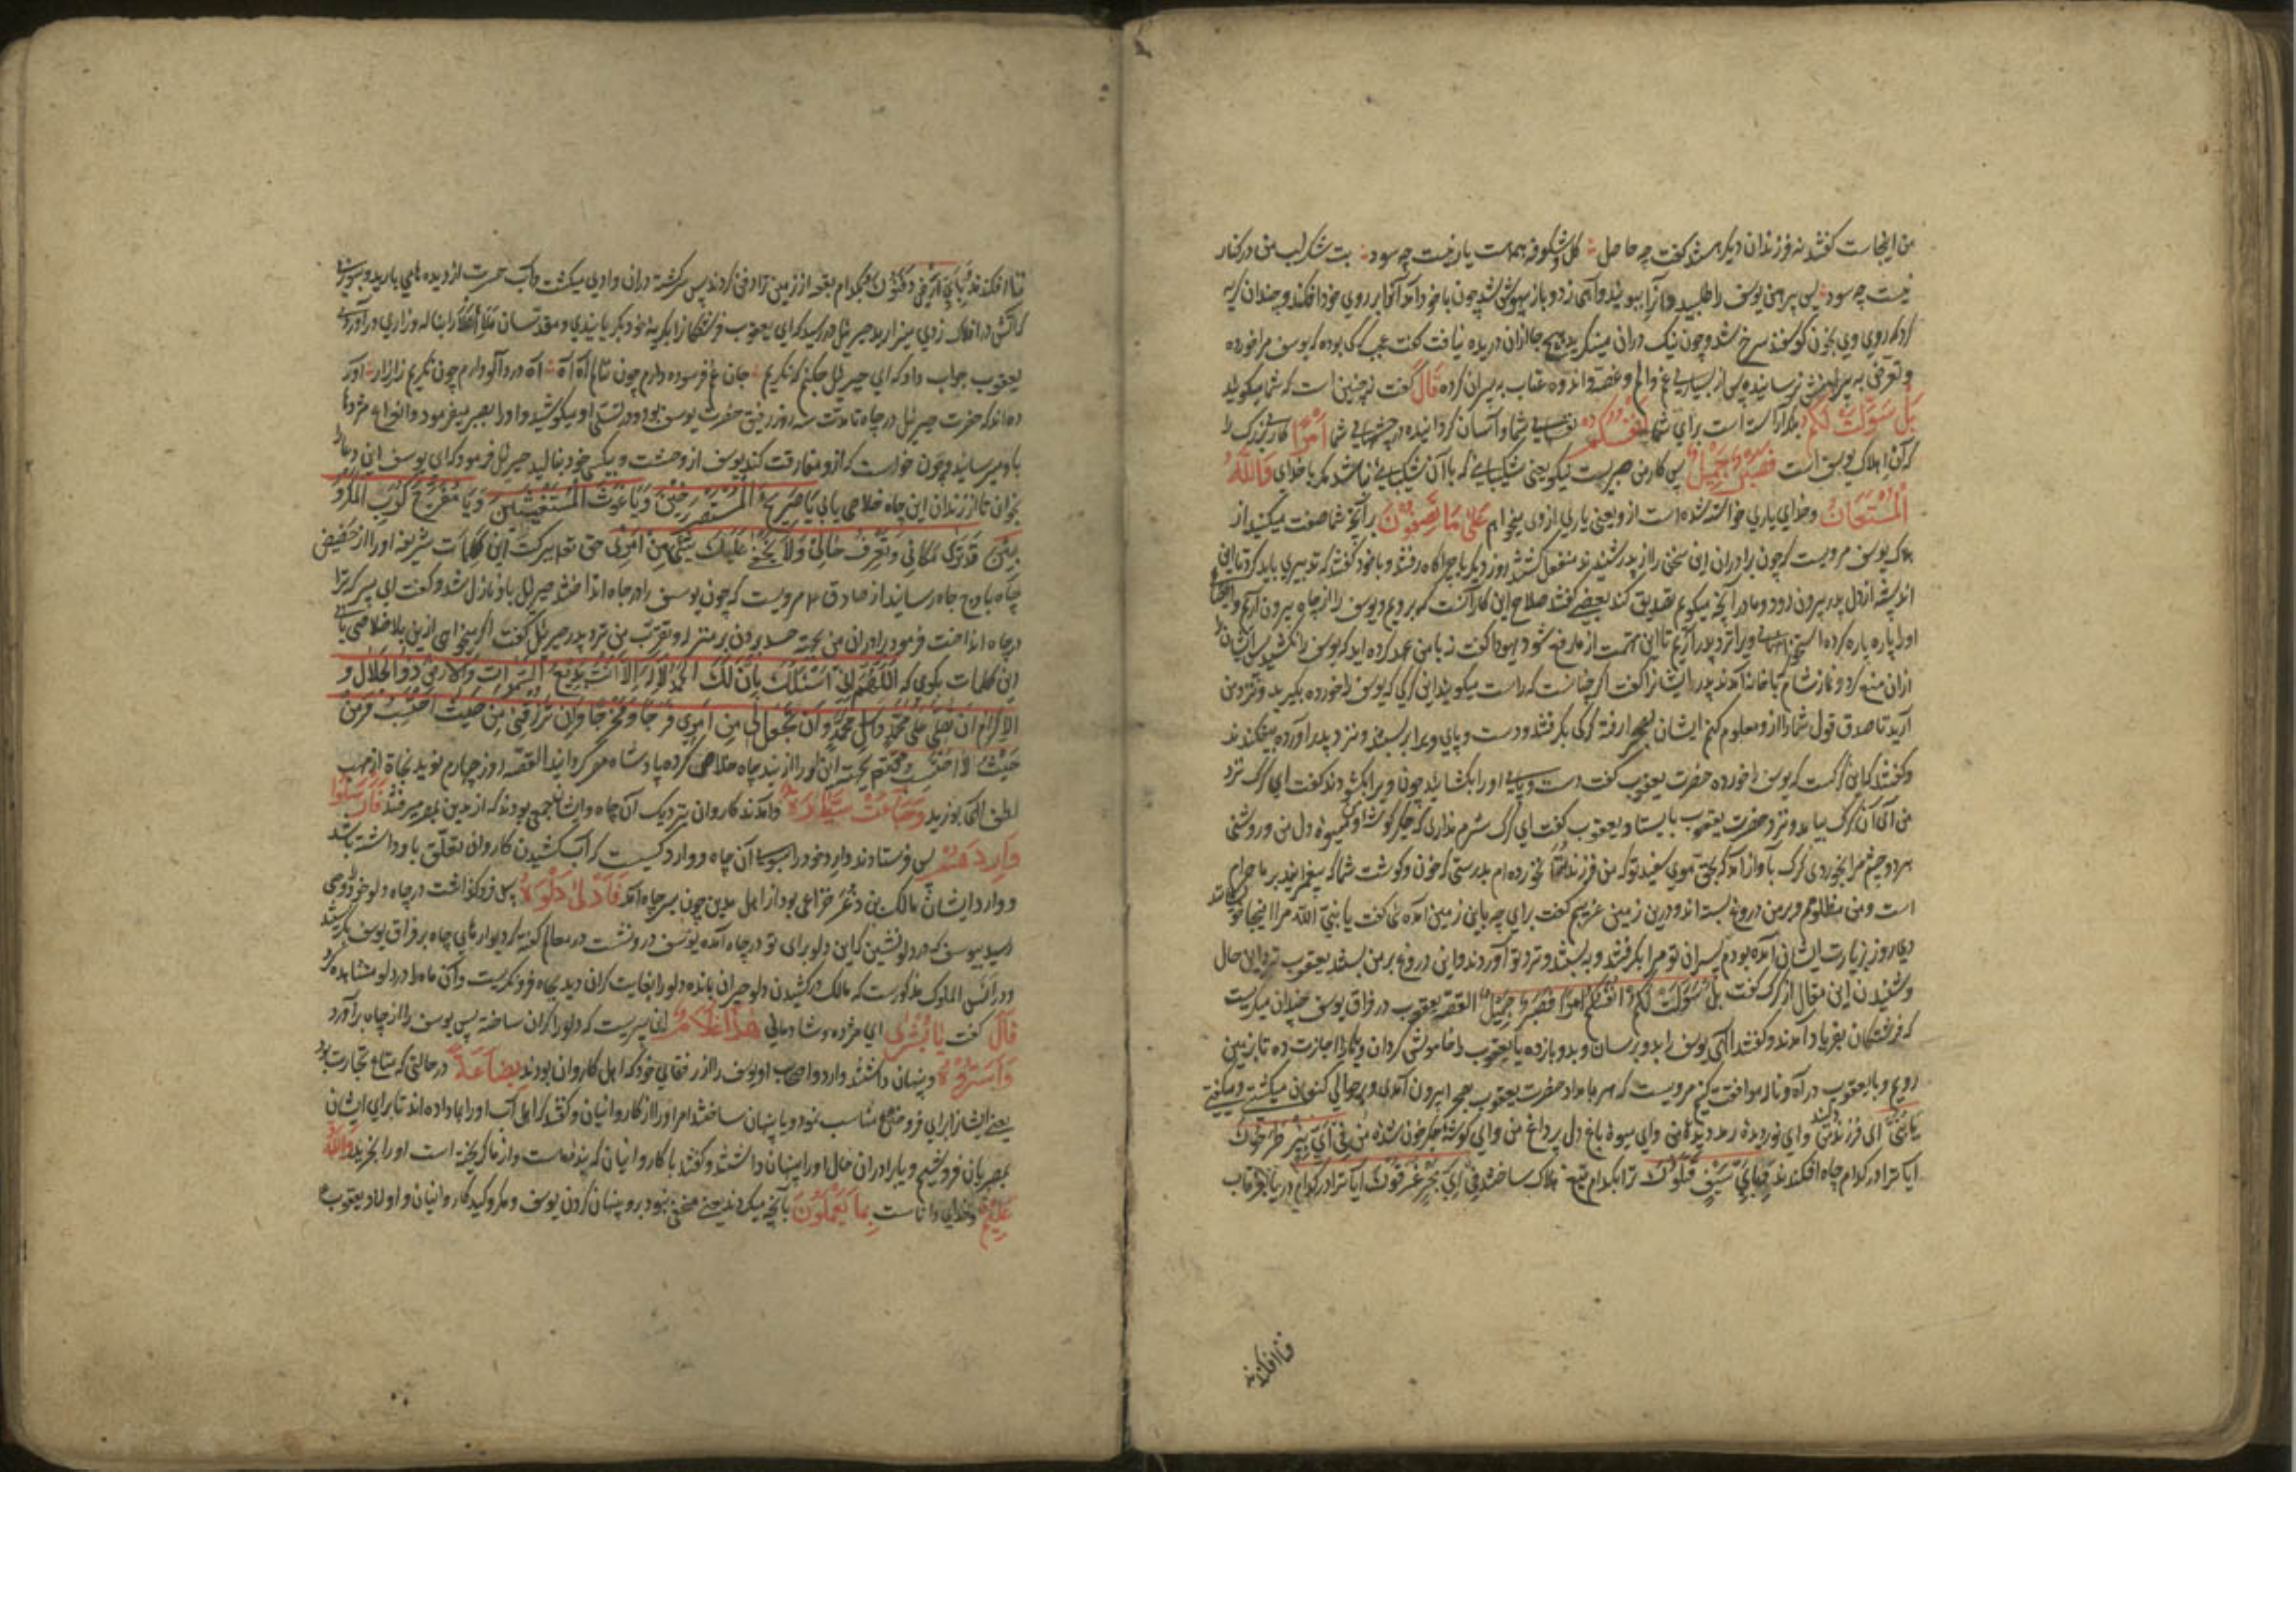 من اینجاست گفتند نه فرزندان دیگر هستند گفت چه حاصل گل و شکوفه همه هست یار نیست چه سود بت شکر لب من در کنار
نیست چه سود پس پیرهن یوسف را طلبید و آنرا ببوئید و آهی زد و باز بیهوش شد چون با خود آمد آنرا بر روی خود افکند و چندان گریه
کرد که روی وی بخون گوسفند سرخ شد و چون نیک در آن مینگرید هیچ جا از آن دریده نیافت گفت عجب گرگی بوده که یوسف مرا خورده
و تعرض به پیراهنش نرسانیده پس از بسیاری غم و الم و غصه و اندوه عتاب به پسران کرده قَالَ گفت نه چنین است که شما میگوئید
بَلْ سَوَّلَتْ لَكُمْ بلکه آراسته است برای شما أَنْفُسُكُمْ نفسهای شما و آسان گردانیده در چشمهای شما أَمْرًا کاری بزرگ را
که آن اهلاک یوسف است فَصَبْرٌ جَمِيلٌ پس کار من صبریست نیکو یعنی شکیبایی که با آن شکیبایی نباشد مگر با خدای وَاللَّهُ
الْمُسْتَعَانُ و خدای یاری خواسته شده است ازو یعنی یاری از وی میخواهم عَلَى مَا تَصِفُونَ بر آنچه شما صفت میکنید از
هلاک یوسف مرویست که چون برادران این سخن را از پدر شنیدند منفعل گشتند روز دیگر با چراگاه رفتند و با خود گفتند که تدبیری باید کرد تا این
اندیشه از دل پدر بیرون رود و ما را آنچه میگویم تصدیق کند بعضی گفتند صلاح این کار آنست که برویم و یوسف را از چاه بیرون آریم و
او را پاره پاره کرده استخوانهای ویرا نزد پدر آریم تا این تهمت از ما رفع شود یهودا گفت نه با من عهد کرده اید که یوسف را نکشید پس ایشان را
از آن منع کرد و نماز شام با خانه آمدند پدر ایشانرا گفت اگر چنانست که راست میگویید این گرگی که یوسف را خورده بگیرید و نزد من
آرید تا صدق قول شما را ازو معلوم کنم ایشان بصحرا رفته گرگی بگرفتند و دست و پای ویرا بر بستند و نزد پدر آورده بیفکندند
و گفتند که این گرگست که یوسف را خورده حضرت یعقوب گفت دست و پای او را بگشایید چون ویرا بگشودند گفت ای گرگ نزد
من آی آن گرگ بیامد و نزد حضرت یعقوب بایستاد و یعقوب گفت ای گرگ شرم نداری که جگر گوشه و میوه دل من و روشنی
هر دو چشم مرا بخوردی گرگ بآواز آمد که بحق موی سفید تو که من فرزند شما نخورده ام بدرستی که خون و گوشت شما که پیغمرانید بر ما حرام
است و من مظلومم و بر من دروغ بسته اند و درین زمین غریبم گفت برای چه باین زمین آمده گفت یا نبی الله مرا اینجا
دی روز بزیارت ایشان آمده بودم پسران تو مرا بگرفتند و ببستند و نزد تو آوردند و این دروغ بر من بستند یعقوب حال
و شنیدن این مقال از گرگ گفت بَلْ سَوَّلَتْ لَكُمْ أَنْفُسُكُمْ أَمْرًا فَصَبْرٌ جَمِيلٌ القصه یعقوب در فراق یوسف چندان میگریست
که فرشتگان بفریاد آمدند و گفتند الهی یوسف را بدو برسان و بدو باز ده یا یعقوب را خاموش گردان و یا ما را اجازت ده تا بزمین
رویم و با یعقوب در آه و ناله موافقت کنیم مرویست که هر بامداد حضرت یعقوب بصحرا بیرون آمدی و بر حوالی کنعان میگشتی و میگفتی
یا بُنَیَّ ای فرزند من و ای نور دیده رمد دیده من و ای میوه باغ دل پر داغ من و ای گوشه جگر خون شده من فی ای بئر طرحوک
ایا ترا در کدام چاه افکندند فبای سیف قتلوک ترا بکدام تیغ هلاک ساختند فی ای بحر غرقوک ایا ترا در کدام دریا
فنا افکندند
فنا افکندند و بای ارض دفنوک بکدام بقعه از زمین ترا دفن کردند پس سرگشته در آن وادی میگشت و آب حسرت از دیده می بارید و
آتش در افلاک زدی جبرئیل در رسید که ای یعقوب فرشتگانرا بگریه خود بگریانیدی و مقدسان ملأ اعلا را بناله و زاری در آوردی
یعقوب جواب داد که ای جبرئیل چکنم که نگریم جان غم فرسوده دارم چون ننالم آه آه آه درد آلود دارم چون نگریم زار زار آور
ده اند که حضرت جبرئیل در چاه تا مدت سه روز رفیق حضرت یوسف بود و در تسلی او میکوشید و او را بصبر میفرمود و انواع مژدها
باو میرسانید و چون خواست که ازو مفارقت کند یوسف از وحشت و بیکسی خود بنالید جبرئیل فرمود که ای یوسف این دعا را
بخوان تا از زندان این چاه خلاصی یابی یَا صَرِیخَ الْمُسْتَصْرِخِینَ وَیَا غَوْثَ الْمُسْتَغِیثِینَ وَیَا مُفَرِّجَ كُرَبِ الْمَكْرُو
بِینَ قَدْ تَرَى مَكَانِی وَتَعْرِفُ حَالِی وَلَا یَخْفَى عَلَیْكَ شَیْءٌ مِنْ أَمْرِی حق تعالی ببرکت این کلمات شریفه او را از حضیض
چاه باوج جاه رسانید از صادق ۴ مرویست که چون یوسف را در چاه انداختند جبرئیل باو نازل شد و گفت ای پسر که ترا
در چاه انداخت فرمود برادران من بجهة حسد بردن بر منزلت و تقرب من نزد پدر جبرئیل گفت اگر میخواهی ازین بلا خلاصی یابی
این کلمات بگوی که اللَّهُمَّ إِنِّی أَسْئَلُكَ بِأَنَّ لَكَ الْحَمْدَ لَا إِلَهَ إِلَّا أَنْتَ بَدِیعُ السَّمَوَاتِ وَالْأَرْضِ ذُو الْجَلَالِ وَ
الْإِكْرَامِ أَنْ تُصَلِّیَ عَلَى مُحَمَّدٍ وَآلِ مُحَمَّدٍ وَأَنْ تَجْعَلَ لِی مِنْ أَمْرِی فَرَجًا وَمَخْرَجًا وَأَنْ تَرْزُقَنِی مِنْ حَیْثُ أَحْتَسِبُ وَمِنْ
حَیْثُ لَا أَحْتَسِبُ او را از بند چاه خلاصی کرده پادشاه مصر گردانید القصه روز چهارم نوید نجاة از مهب
لطف الهی بوزید وَجَاءَتْ سَیَّارَةٌ و آمدند کاروان نزدیک آن چاه و ایشان جمعی بودند که از مدین بمصر میرفتند فَأَرْسَلُوا
وَارِدَهُمْ پس فرستادند وارد خود را بسوی آن چاه و وارد کسیست که آب کشیدن کاروان تعلق باو داشته باشد
و وارد ایشان مالک بن ذعر خزاعی بود از اهل مدین چون بسر چاه آمد فَأَدْلَى دَلْوَهُ پس فرو گذاشت در چاه دلو خود را وحی
رسید بیوسف که در دلو نشین که این دلو برای تو در چاه آمده یوسف درو نشست در معالم گفته که دیوارهای چاه بر فراق یوسف بگریستند
و در انیس الملوک مذکورست که مالک در کشیدن دلو حیران بمانده دلو را بغایت گران دید بچاه فرو نگریست و آن ماه را در دلو مشاهده کرد
قَالَ گفت یَا بُشْرَى ای مژده و شادمانی هَذَا غُلَامٌ این پسریست که دلو را گران ساخته پس یوسف را از چاه برآورد
وَأَسَرُّوهُ و پنهان داشتند وارد و اصحاب او یوسف را از رفقای خود که اهل کاروان بودند بِضَاعَةً در حالتی که متاع تجارت بود
یعنی ایشان از برای فروختن مناسب نمود و یا پنهان ساختند امر او را از کاروانیان و گفتند که اهل آب او را بما داده اند تا برای ایشان
بمصر یان فروشیم و یا برادران حال او را پنهان داشتند و گفتند با کاروانیان که بنده ماست و از ما گریخته است او را بخرید وَاللَّهُ
عَلِیمٌ و خدای داناست بِمَا یَعْمَلُونَ بآنچه میکردند یعنی مخفی نبود برو پنهان کردن یوسف و مکر و کید کاروانیان و اولاد یعقوب